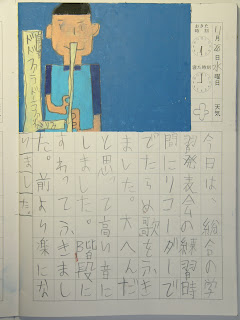 11月28日水曜日
天気
おきた時刻
ねた時刻
今日は、総合の学
習発表会の練習時
間にリコーダーで
でたらめ歌をふき
ました。大へんだ
と思って高い音に
しました。階段に
すわってふきまし
た。前より楽にな
りました。